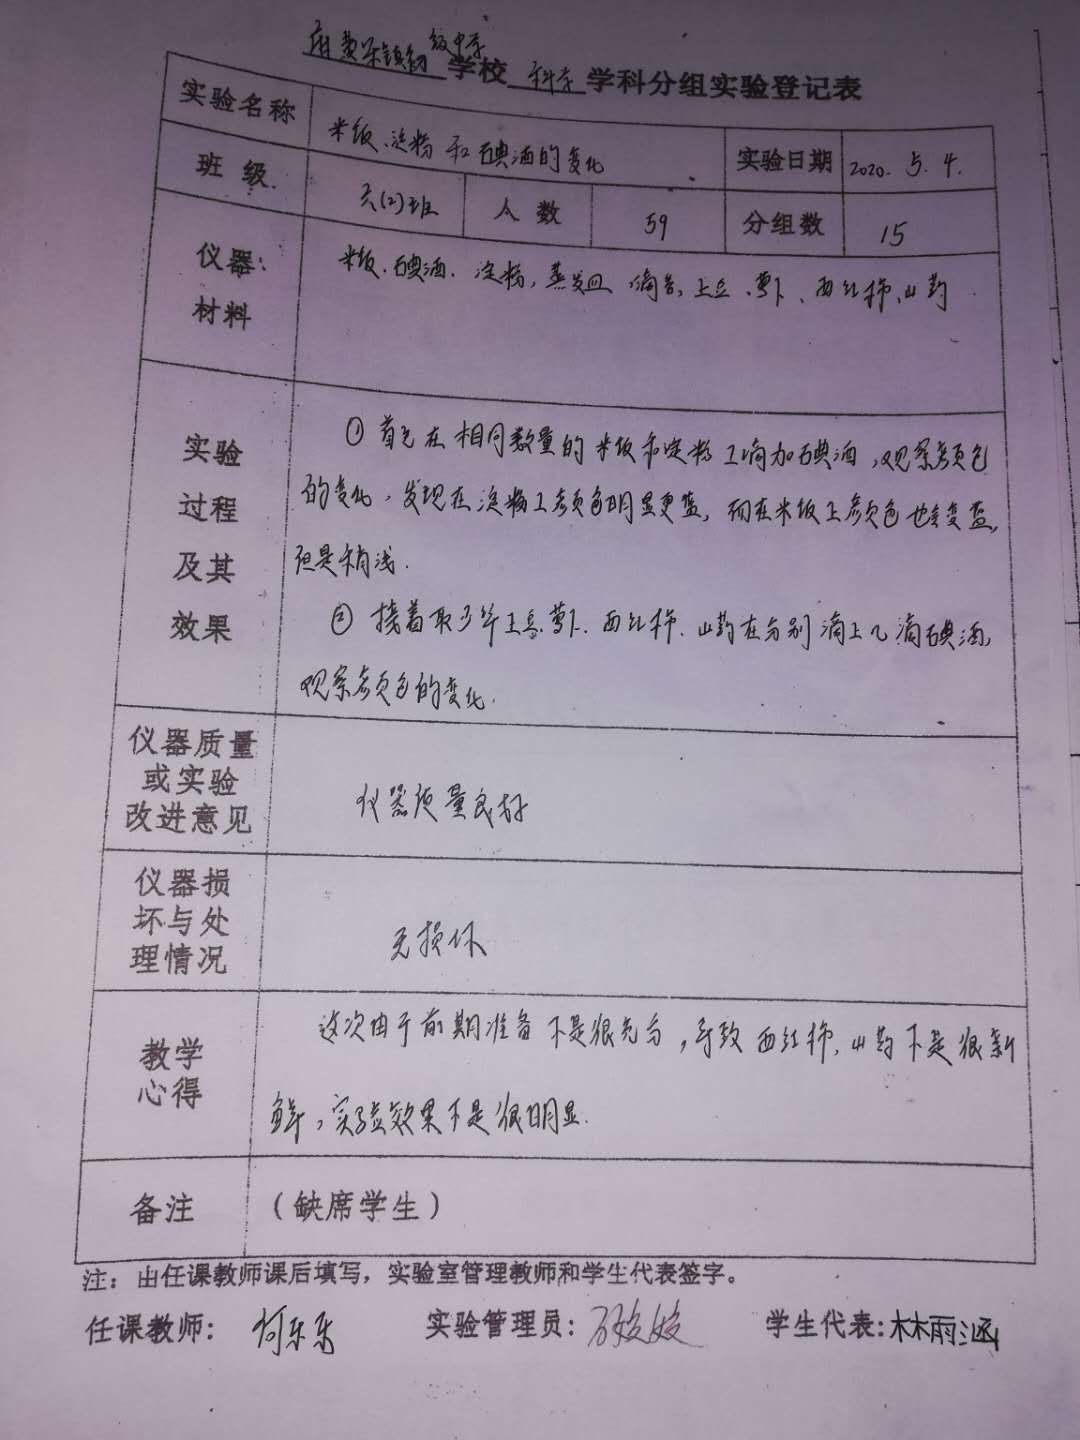 级中学
学校 科学 学科分组实验登记表
实验名称 米饭、淀粉和碘酒的变化 实验日期 2020. 5. 4.
班级 六(2)班 人数 59 分组数 15
仪器:
材料
米饭、碘酒、淀粉,蒸发皿、滴管,土豆、萝卜、西红柿、山药
实验
过程
及其
效果
①首先在相同数量的米饭和淀粉上滴加碘酒,观察颜色
的变化,发现在淀粉上颜色明显更蓝,而在米饭上颜色也会变蓝,
但是稍浅.
②接着取了些土豆、萝卜、西红柿、山药在分别滴上几滴碘酒,
观察颜色的变化.
仪器质量
或实验
改进意见
仪器质量良好
仪器损
坏与处
理情况
无损坏
教学
心得
这次由于前期准备不是很充分,导致西红柿、山药不是很新
鲜,实验效果不是很明显.
备注 (缺席学生)
注:由任课教师课后填写,实验室管理教师和学生代表签字。
任课教师: 何乐乐 实验管理员: 学生代表:林雨涵